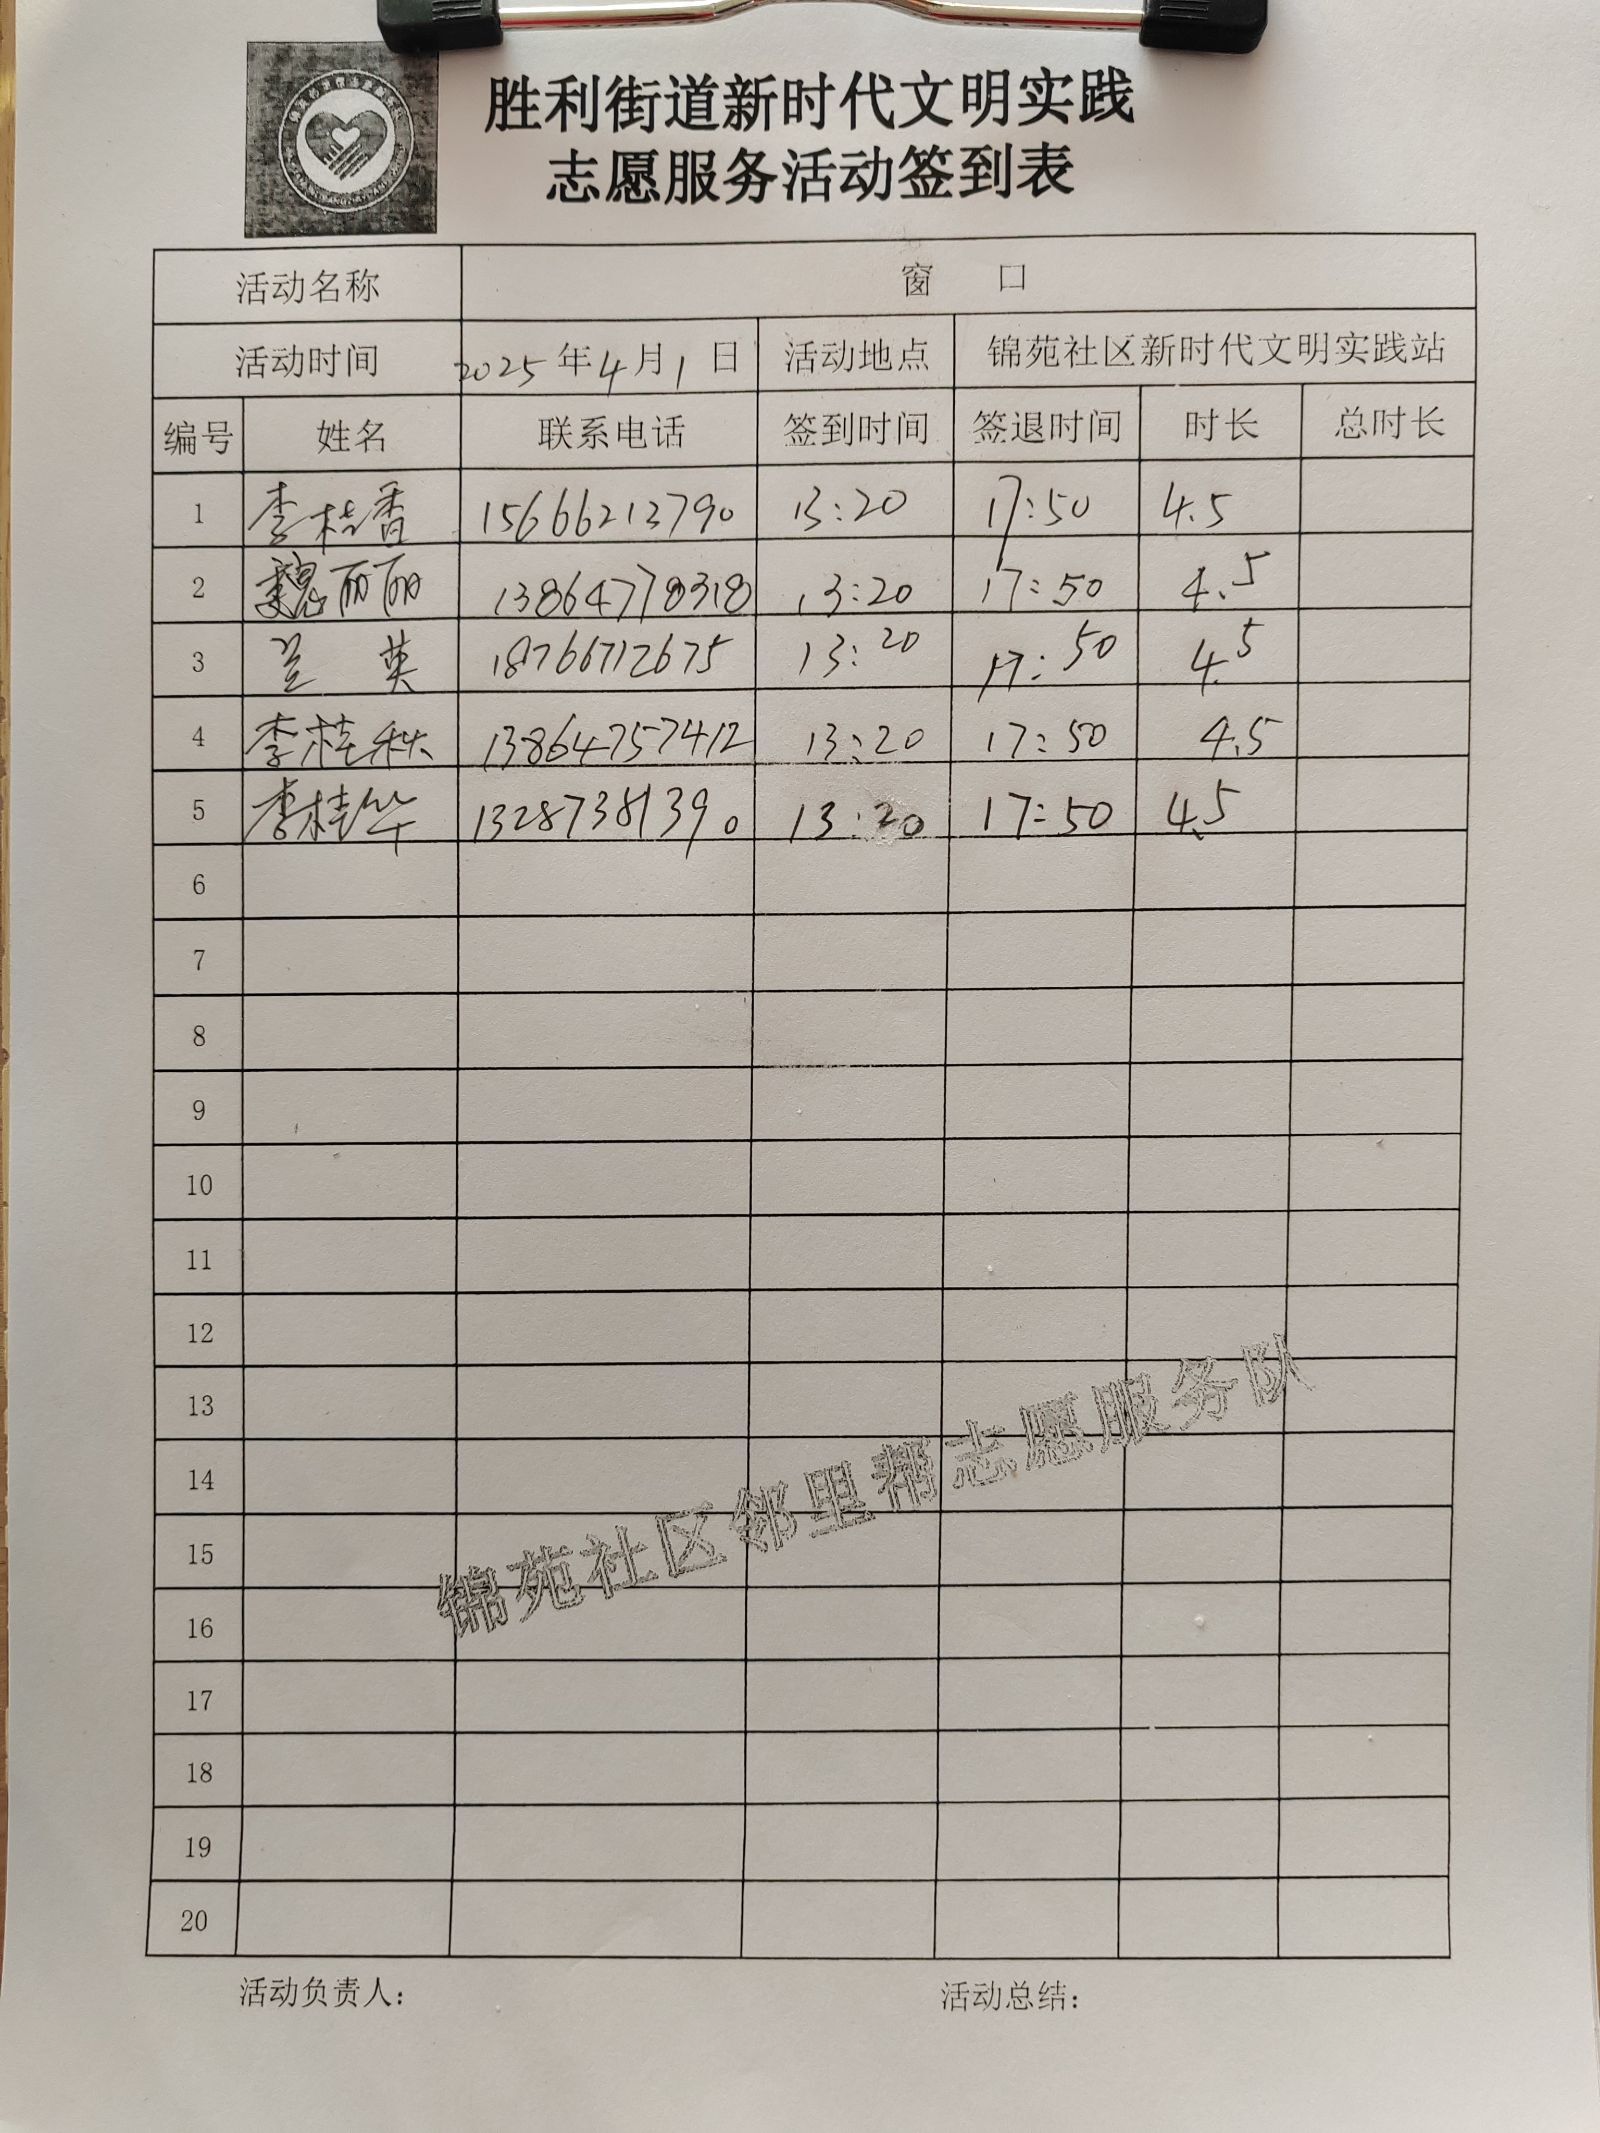 胜利街道新时代文明实践
志愿服务活动签到表
活动名称 窗 口
活动时间 2025年4月1日 活动地点 锦苑社区新时代文明实践站
编号 姓名 联系电话 签到时间 签退时间 时长 总时长
1 李桂香 15666213790 13:20 17:50 4.5
2 魏丽丽 13864778318 13:20 17:50 4.5
3 兰 英 18766712675 13:20 17:50 4.5
4 李桂秋 13864757412 13:20 17:50 4.5
5 李桂华 13287381390 13:20 17:50 4.5
6
7
8
9
10
11
12
13
14
15
16
17
18
19
20
锦苑社区邻里帮志愿服务队
活动负责人: 活动总结: